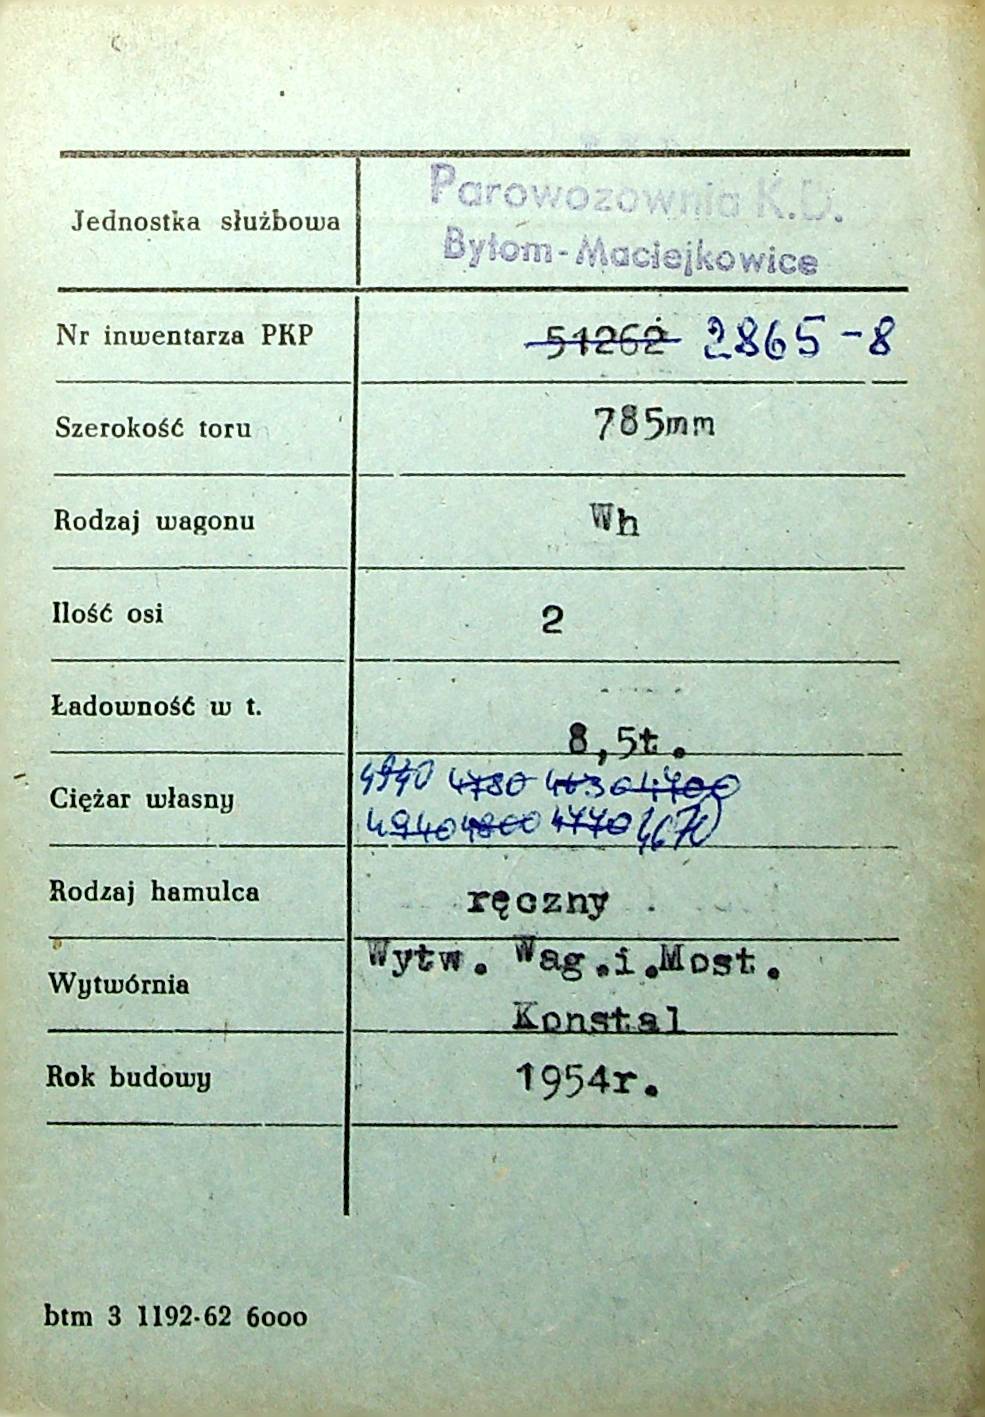 Jednostka służbowa
Parowozownia K.D.
Bytom-Maciejkowice
Nr inwentarza PKP 51262 2865-8
Szerokość toru 785mm
Rodzaj wagonu Wh
Ilość osi 2
Ładowność w t. 8,5t.
Ciężar własny
4940 4780 4630 4700
4940 4800 4770 4670
Rodzaj hamulca ręczny
Wytwórnia
Wytw. Wag.i.Most.
Konstal
Rok budowy 1954r.
btm 3 1192-62 6000